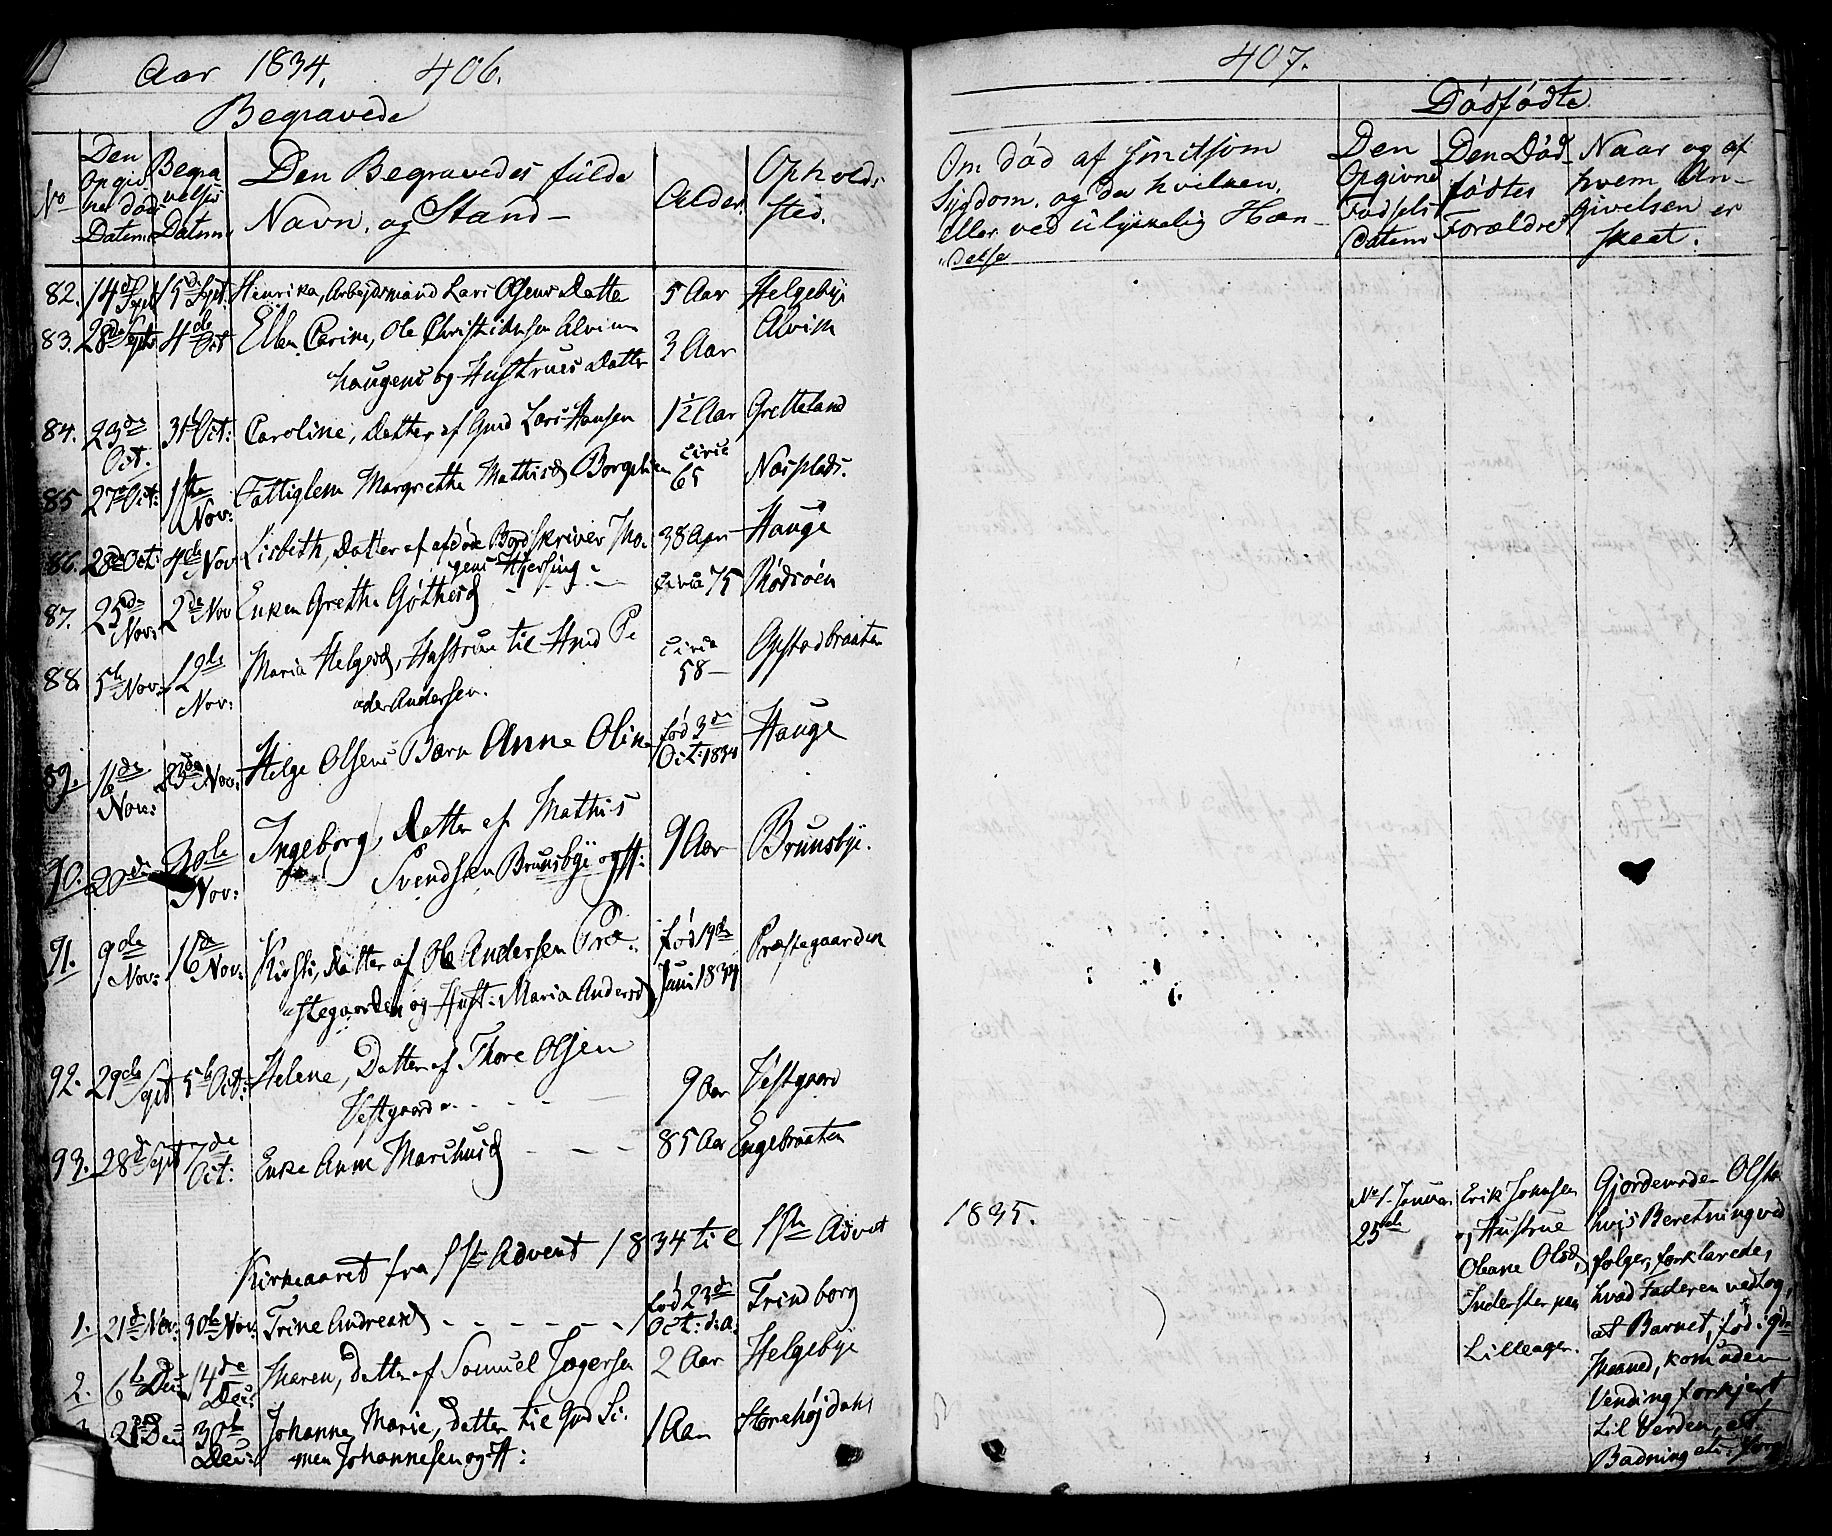 Aar 1834. 406.
Begravede
No
Den Opgivne døds Datum
Begravelses Datum
Den Begravedes fulde Navn, og Stand
Alder
Opholdssted.
82. 14de Sept 15de Sept: Henrika, Arbejdsmand Lars Olsens Datter 5 Aar Helgebye
83. 28de Septr 4de Oct Ellen Carine, Ole Christiansen Alvim- 3 Aar Alvim
haugens og Hustrues Datter
84. 23de Oct. 31te Oct: Caroline, Datter af Gmd Lars Hansen 1½ Aar Gretteland
85 27de Oct: 1ste Nov: Fattiglem Margrethe Mathisd circa 65 Næsplads.
86. 28de Oct: 4de Nov Lisbeth, Datter af afdøde Bordskriver 38 Aar Hauge
87. 25de Nov: 2de Nov Enken Grethe Gøthesd - - - circa 75 Rødsøen
88. 5te Nov: 12te Nov: Maria Helgesd, Hustrue til Hmd Pe circa 58 - Opstadbraaten
der Andersen.
89. 16de Nov: 23de Nov: Helge Olsens Barn Anne Oline fød 3de Oct: 1834 Hauge
90. 20de 30te Nov: Ingeborg, Datter af Mathis 9 Aar Brunsbye.
Svendsen Brunsbye og H:
91. 9de Nov: 16de Nov: Kirsti, Datter af Ole Andersen Præ- fød 19de Juni 1834 Præstegaarden
stegaarden og Hust: Maria Andersd
92. 29de Sept 5te Oct: Helene, Datter af Thore Olsen 9 Aar Vestgaard
Vestgaard - - - -
93. 28de Sept 7de Oct: Enke Anne Marchusd - - - 85 Aar Engebraaten
Kirkeaaret fra 1ste Advent 1834 til 1ste Advet
1. 21de Nov: 30te Nov: Trine Andreasd - - - - - fød 23de Oct: d: A: Trindborg
2. 6te Dec: 14de Dec: Maren, datter af Samuel Jægersen 2 Aar Helgebye
21de Dec 30te Dec: Johanne Marie, datter til Gmd Si- 1 Aar Storehøjdahl
men Johannesen og H:
407.
Om død af smitsom
Sygdom, og da hvilken,
eller ved ulykkelig Hæn-
delse
Dødfødte
Den Opgivne Fødsels Datum
Den Dødfødtes Forældre
Naar og af hvem Angivelsen er skeet.
1835.
No 1. Januar
25de
Erik Johnsen
og Hustrue
Oleane Olsd,
Inderster paa
Lilleager.
Gjordemoder Olsta
hvis Beretning ved-
følger, forklarede,
hvad Faderen vedtog,
at Barnet, fød i 9de
Maaned, kom uden
Vending forkjert
til Verden, at
Badning etc: